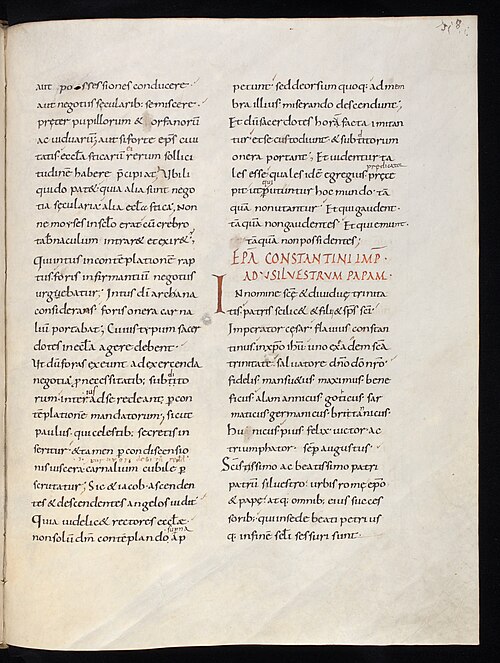 aut possessiones conducere.
aut negotiis sęcularib; se miscere.
pręter pupillorum & orfanorũ
ac uiduarũ; aut si forte ep̃s ciui
tatis eccl̃a sticarũ rerum sollici
tudinẽ habere p̃cipiat; Ubi li
quido pat& quia alia sunt nego
tia sęcularia alia eccl̃astica; Non
ne moyses in sęlo erat cũ crebro
tab̃naculum intrar& et exir&;
Qui intus in contẽplatione rap
tus foris infirmantiũ negotiis
urgu&batur; Intus d̃i archana
considerans foris onera carna
liũ portabat; Cuius typum sacer
dotes in eccl̃a agere debent.
Ut dũ foras exeunt ad exercenda
negotia p necessitatib; subditto
rum. inter ad se redeant; p con
tẽplatione mandatorum; sicut
paulus qui celestib; secretis in
seritur & tamen p condiscensio
nis uiscera carnalium cubile p
serutatur; Sic & iacob ascenden
tes & descendentes angelos uidit
Quia uidelic& rectores eccl̃æ
non solũ dm̃ contẽplando ap
supra
petunt sed deorsum quoq; ad mem
bra illius miserando descendunt;
Et dũ sacerdotes horã facta imitan
tur et se custodiunt & subditorum
onera portant; Et uidentur ta
les esse quales id̃e egregius pręce
predicator
pit ut qui utuntur hoc mundo tã
quã non utantur Et qui gaudent.
tã quã non gaudentes Et qui emunt.
tã quã non possidentes;
EPA CONSTANTINI IMP̃.
AD SILVESTRVM PAPAM.
IN nomine sc̃ę & diuiduę trinita
tis patris scilic& & filii & sp̃s sc̃i
Imperator cęsar flauius constan
tinus in xp̃o ih̃u uno ex eadẽ sc̃a
trinitate saluatore dño d̃o nr̃o
fidelis mansu&us maximus bene
ficus alamannicus goticus sar
maticus germanicus brittãnicus
hunicus pius felix uictor ac
triumphator. sẽp augustus.
Sc̃issimo ac beatissimo patri
patrũ siluestro urbis romę ep̃o
& papę; atq; omnib; eius succes
sorib; qui in sede beati petri us
q; in finẽ sęc̃li sessuri sunt.